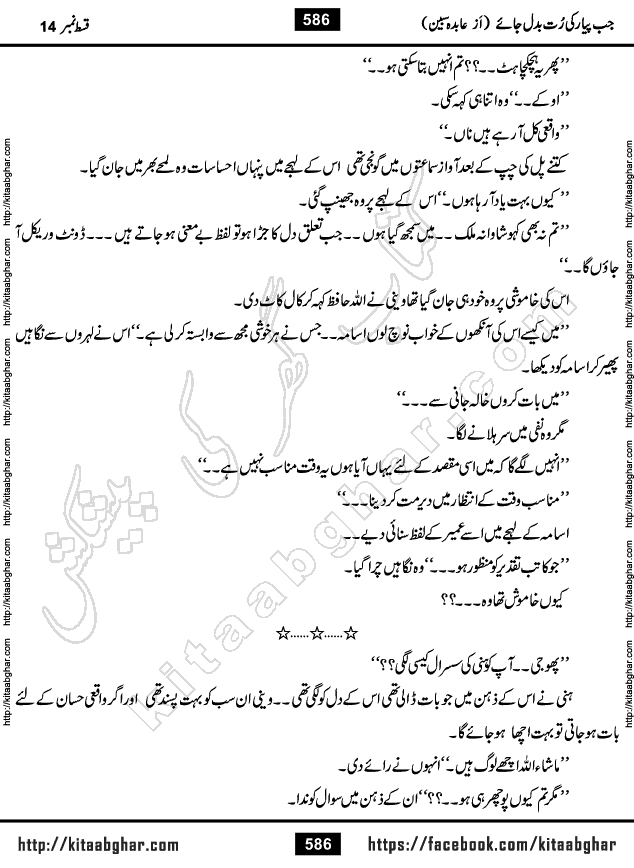 جب پیار کی رُت بدل جائے (اَز عابدہ سبین) 586 قسط نمبر 14
’’پھر یہ ہچکچاہٹ ۔۔؟؟ تم انہیں بتا سکتی ہو۔۔‘‘
’’اوکے۔۔‘‘ وہ اتنا ہی کہہ سکی۔
’’واقعی کل آ رہے ہیں ناں۔‘‘
کتنے پل کی چپ کے بعد آواز سماعتوں میں گونجی تھی اس کے لہجے میں پنہاں احساسات وہ لمحے بھر میں جان گیا۔
’’کیوں بہت یاد آ رہا ہوں۔‘‘ اس کے لہجے پر وہ جھینپ گئی۔
’’تم نہ بھی کہو شاوانہ ملک ۔۔ میں سمجھ گیا ہوں ۔۔ جب تعلق دل کا جڑا ہو تو لفظ بے معنی ہو جاتے ہیں ۔۔۔ ڈونٹ وری کل آ
جاؤں گا۔۔‘‘
اس کی خاموشی پر وہ خود ہی جان گیا تھا وینی نے اللہ حافظ کہہ کر کال کاٹ دی۔
’’میں کیسے اس کی آنکھوں کے خواب نوچ لوں اسامہ ۔۔ جس نے ہر خوشی مجھ سے وابستہ کر لی ہے۔‘‘ اس نے لہروں سے نگاہیں
پھیر کر اسامہ کو دیکھا۔
’’میں بات کروں خالہ جانی سے ۔۔۔‘‘
مگر وہ نفی میں سر ہلانے لگا۔
’’انہیں لگے گا کہ میں اسی مقصد کے لئے یہاں آیا ہوں یہ وقت مناسب نہیں ہے۔۔‘‘
’’مناسب وقت کے انتظار میں دیر مت کر دینا۔۔۔‘‘
اسامہ کے لہجے میں اسے عمیر کے لفظ سنائی دیے۔
’’جو کاتب تقدیر کو منظور ہو۔۔۔‘‘ وہ نگاہیں چرا گیا۔
کیوں خاموش تھا وہ ۔۔۔؟؟
☆......☆......☆
’’پھوجی۔۔ آپ کو ہنی کی سسرال کیسی لگی؟؟‘‘
ہنی نے اس کے ذہن میں جو بات ڈالی تھی اس کے دل کو لگی تھی ۔۔ وینی ان سب کو بہت پسند تھی اور اگر واقعی حسان کے لئے
بات ہو جاتی تو بہت اچھا ہو جائے گا۔
’’ماشاء اللہ اچھے لوگ ہیں۔‘‘ انہوں نے رائے دی۔
’’مگر تم کیوں پوچھ رہی ہو۔۔؟؟‘‘ ان کے ذہن میں سوال کوندا۔
کتاب گھر کی پیشکش
kitaabghar.com
http://kitaabghar.com http://kitaabghar.com http://kitaabghar.com http://kitaabghar.com http://kitaabghar.com http://kitaabghar.com
http://kitaabghar.com http://kitaabghar.com http://kitaabghar.com http://kitaabghar.com http://kitaabghar.com http://kitaabghar.com
http://kitaabghar.com 586 https://facebook.com/kitaabghar